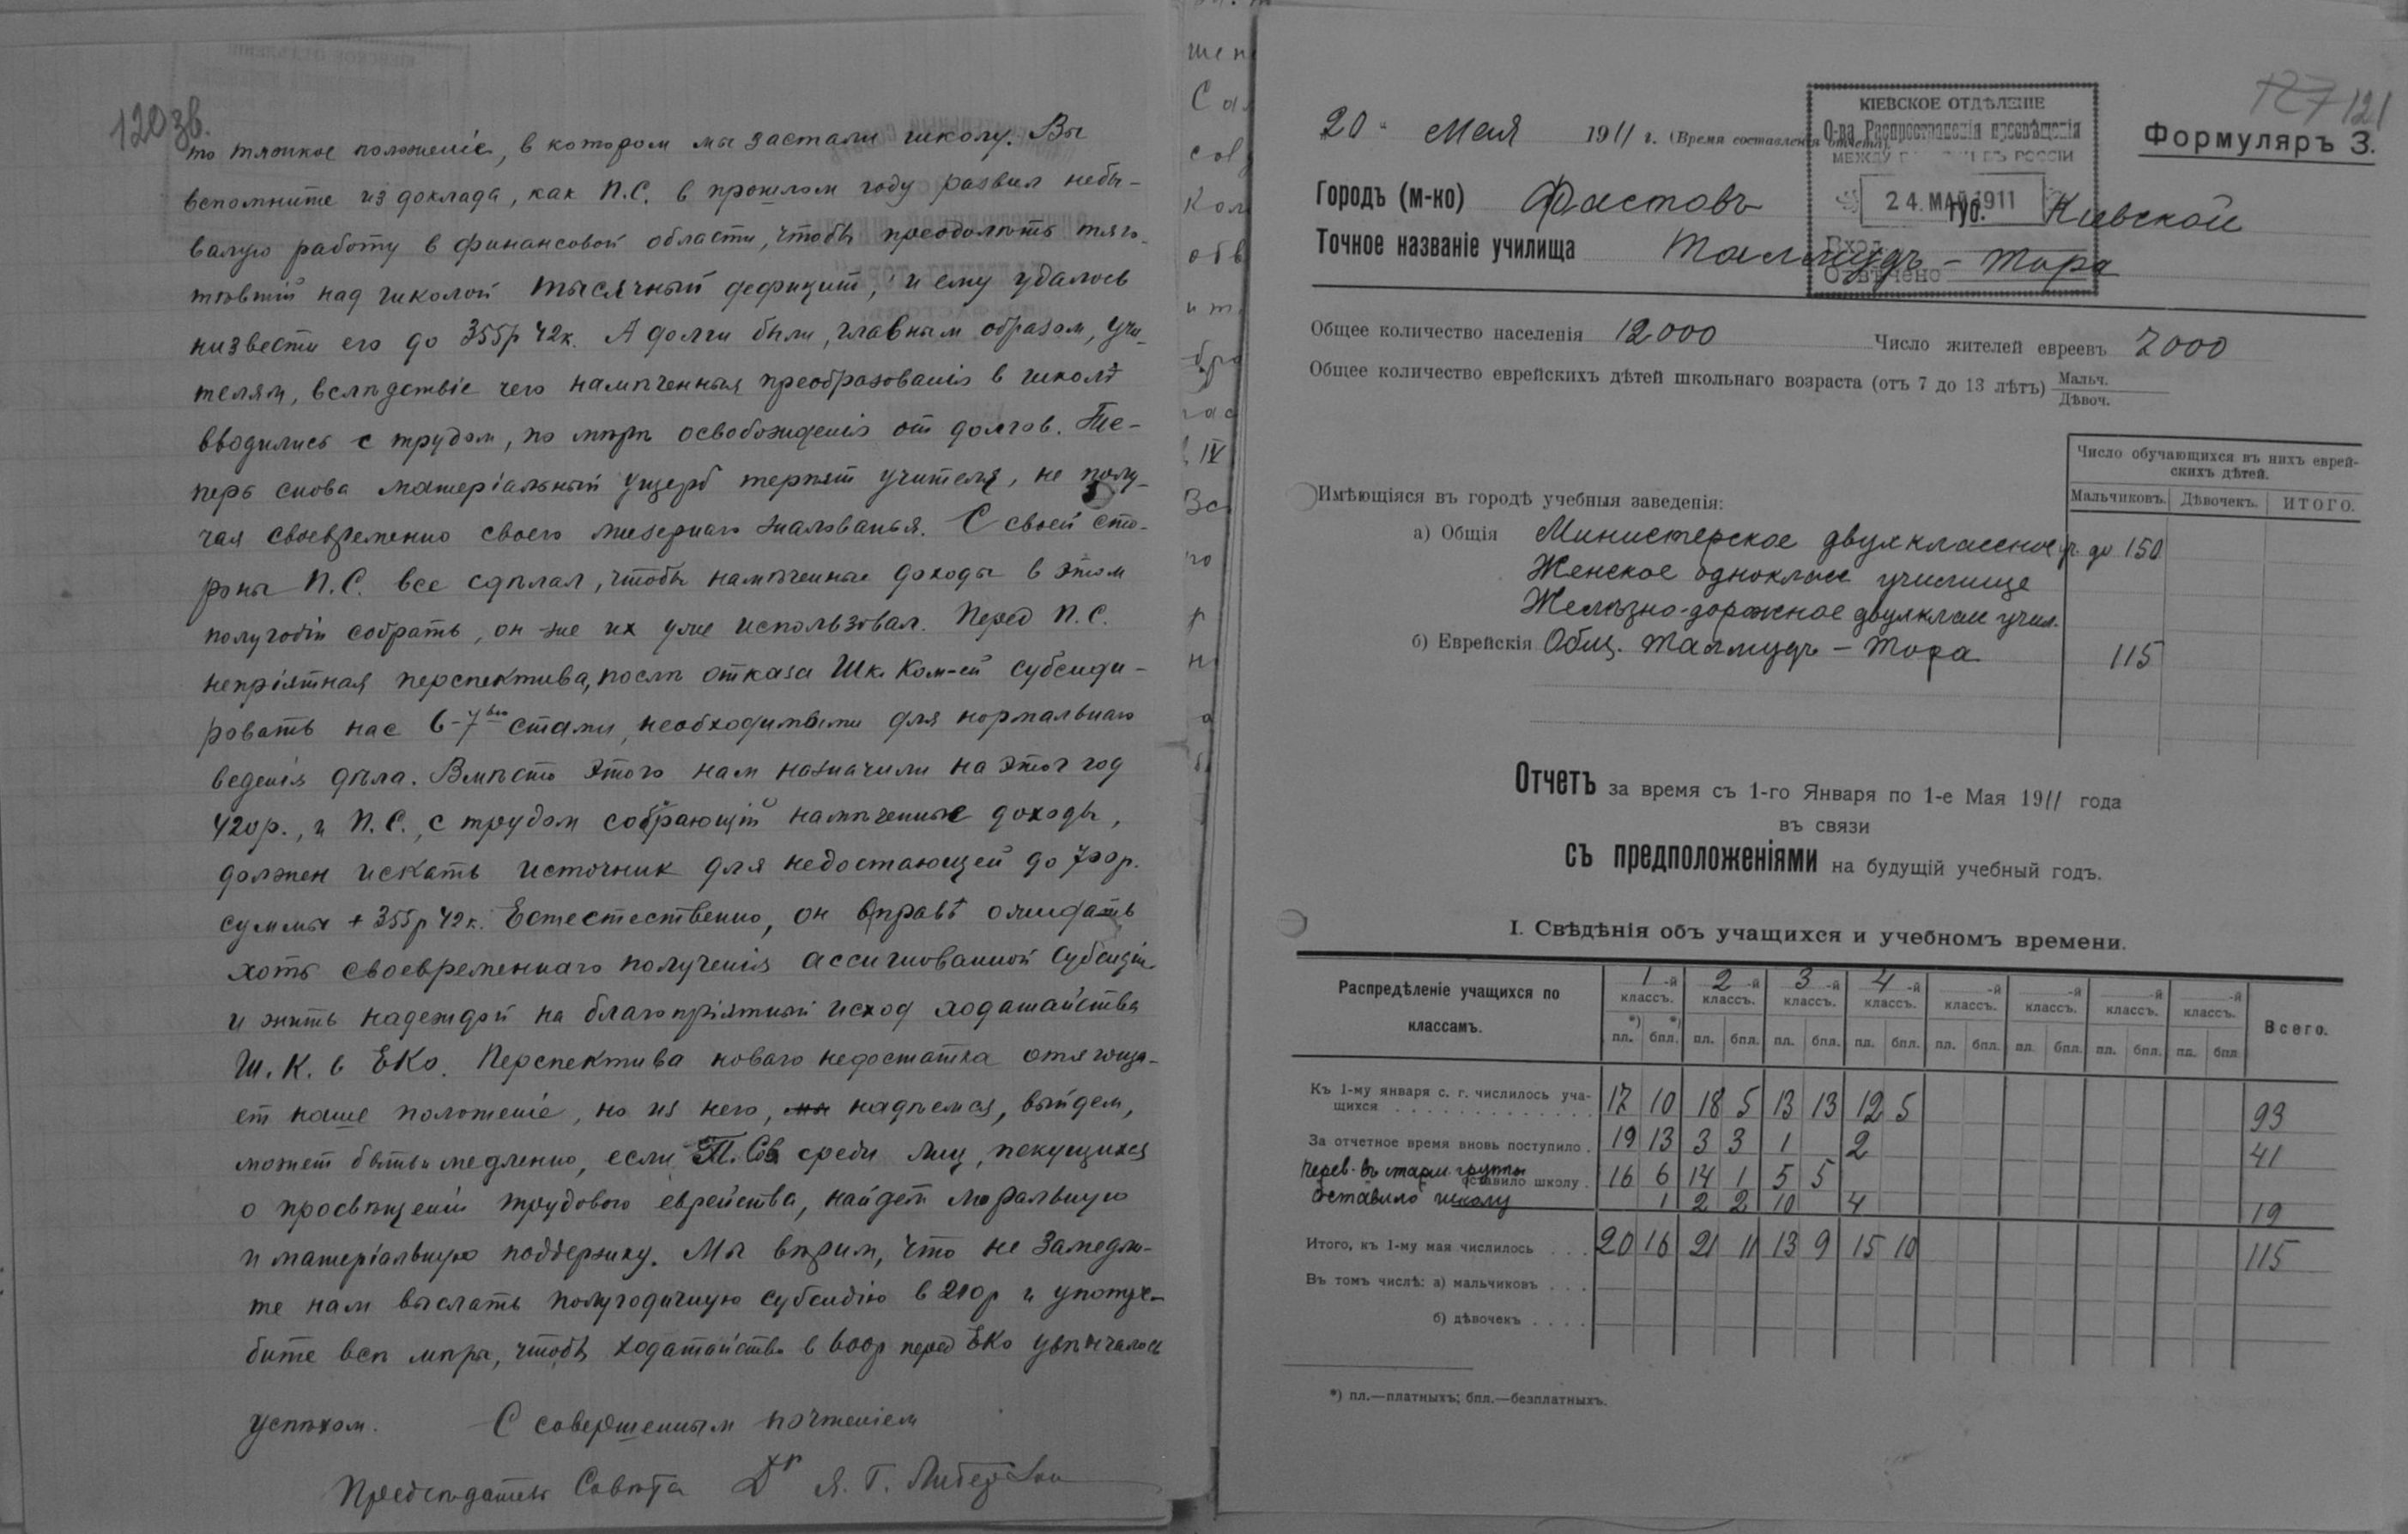 120 зв.
то тяжкое положеніе, в котором мы застали школу. Вы
вспомните из доклада, как П.С. в прошлом году развил небы-
валую работу в финансовой области, чтобы преодолѣть тяго-
тѣвшій над школой тысячный дефицит, и ему удалось
низвести его до 355р 42к. А долги были, главным образом, учи-
телям, вслѣдствіе чего намѣченныя преобразованія в школѣ
вводились с трудом, по мѣрѣ освобожденія от долгов. Те-
перь снова матеріальный ущерб терпят учителя, не полу-
чая своевременно своего мизернаго жалованья. С своей сто-
роны П.С. все сдѣлал, чтобы намѣченные доходы в этом
полугодіи собрать, он-же их уже использовал. Перед П.С.
непріятная перспектива, послѣ отказа Шк. Ком-ей субсиди-
ровать нас 6-7ью стами, необходимыми для нормальнаго
веденія дѣла. Вмѣсто этого нам назначили на этот год
420р., и П.С., с трудом собирающій намѣченные доходы,
должен искать источник для недостающей до 700р.
суммы + 355р 42к. Естестественно, он вправѣ ожидать
хоть своевременнаго полученія ассигнованной субсидіи
и жить надеждой на благопріятный исход ходатайства
Ш.К. в ЕКо. Перспектива новаго недостатка отягоща-
ет наше положеніе, но из него, надѣемся, выйдем,
может быть и медленно, если П. Сов. среди лиц, пекущихся
о просвѣщеніи трудового еврейства, найдет моральную
и матеріальную поддержку. Мы вѣрим, что не замедли-
те нам выслать полугодичную субсидію в 210р и употре-
бите всѣ мѣры, чтобы ходатайство в 600р перед ЕКо увѣнчалось
успѣхом. С совершенным почтеніем
Предсѣдатель Совѣта Dr Я. Г.
127 121
Формуляръ 3.
20 Мая 1911 г. (Время составленія отчета).
КІЕВСКОЕ ОТДѢЛЕНІЕ
О-ва Распространенія просвѣщенія
МЕЖДУ ЕВРЕЯМИ ВЪ РОССІИ
24. МАЙ 1911
Вход.
Отвѣчено
Городъ (м-ко) Фастовъ губ. Кіевской
Точное названіе училища Талмудъ-Тора
Общее количество населенія 12000 Число жителей евреевъ 7000
Общее количество еврейскихъ дѣтей школьнаго возраста (отъ 7 до 13 лѣтъ) Мальч.
Дѣвоч.
Число обучающихся въ нихъ еврей-
скихъ дѣтей.
Мальчиковъ. Дѣвочекъ. ИТОГО.
Имѣющіяся въ городѣ учебныя заведенія:
а) Общія Министерское двухклассное у. до 150
Женское одноклас училище
Желѣзно-дорожное двухклас учил.
б) Еврейскія Общ. Талмудъ-Тора 115
Отчетъ за время съ 1-го Января по 1-е Мая 1911 года
въ связи
съ предположеніями на будущій учебный годъ.
I. Свѣдѣнія объ учащихся и учебномъ времени.
Распредѣленіе учащихся по классамъ. 1-й классъ. 2-й классъ. 3-й классъ. 4-й классъ. -й классъ. -й классъ. -й классъ. -й классъ. Всего.
*) пл. *) бпл. пл. бпл. пл. бпл. пл. бпл. пл. бпл. пл. бпл. пл. бпл. пл. бпл.
Къ 1-му января с. г. числилось уча-
щихся 17 10 18 5 13 13 12 5 93
За отчетное время вновь поступило 19 13 3 3 1 2 41
Перев. въ старш. группы оставило школу 16 6 14 1 5 5
Оставило школу 1 2 2 10 4 19
Итого, къ 1-му мая числилось 20 16 21 11 13 9 15 10 115
Въ томъ числѣ: а) мальчиковъ
б) дѣвочекъ
*) пл.—платныхъ; бпл.—безплатныхъ.